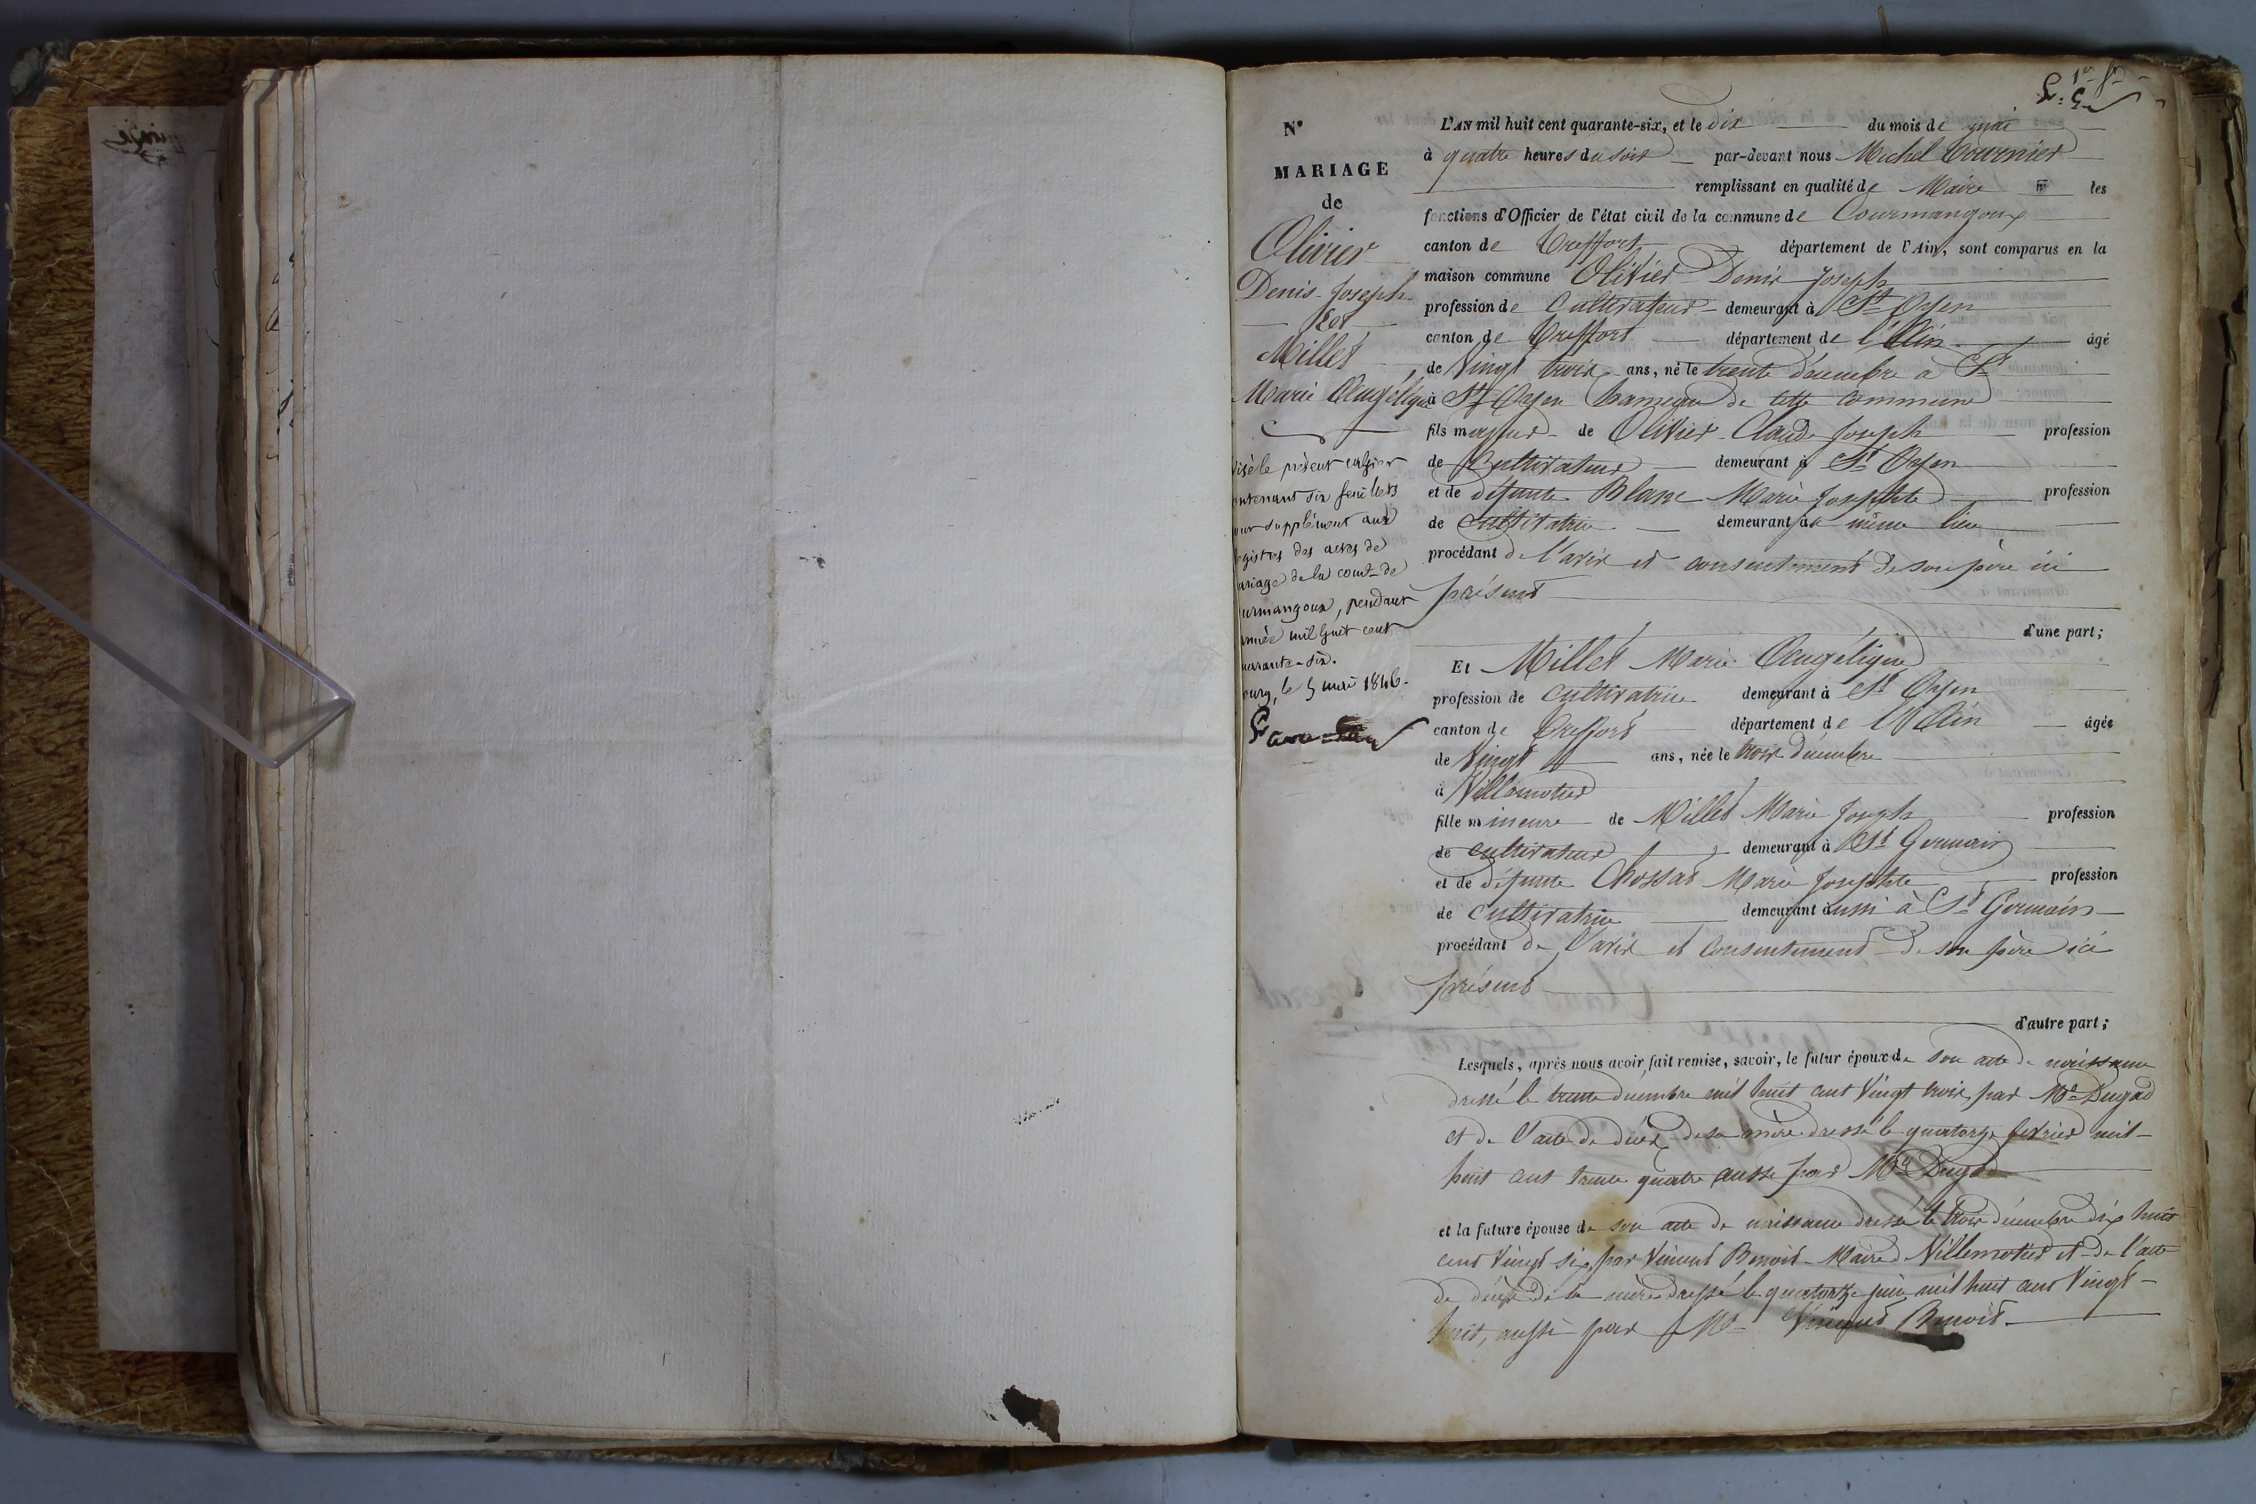 1er f.
N°
MARIAGE
de
Olivier
Denis-Joseph
Et
Millet
Marie Angélique
Visé le présent cahier
contenant six feuillets
pour supplément aux
registres des actes de
mariage de la comune de
Courmangoux, pendant
année mil huit cent
quarante-six.
Bourg, le 5 mai 1846.
L'AN mil huit cent quarante-six, et le dix du mois de mai
à quatre heures du soir par-devant nous Michel Tournier
remplissant en qualité de Maire les
fonctions d'Officier de l'état civil de la commune de Courmangoux
canton de Treffort département de l'Ain, sont comparus en la
maison commune Olivier Denis Joseph
profession de Cultivateur demeurant à St Oyen
canton de Treffort département de l'Ain âgé
de Vingt trois ans, né le trente décembre à St
à St Oyen hameau de cette commune
fils majeur de Olivier Claude Joseph profession
de Cultivateur demeurant à St Oyen
et de défunte Blanc Marie Josephte profession
de cultivatrice demeurant au même lieu
procédant de l'avis et consentement de son père ici
présent
d'une part;
Et Millet Marie Angélique
profession de cultivatrice demeurant à St Oyen
canton de Treffort département de l'Ain âgée
de Vingt ans, née le trois décembre
à Villemotier
fille mineure de Millet Marie Joseph profession
de cultivateur demeurant à St Germain
et de défunte Chossat Marie Josephte profession
de cultivatrice demeurant aussi à St Germain
procédant de l'avis et consentement de son père ici
présent
d'autre part;
Lesquels, après nous avoir fait remise, savoir, le futur époux de son acte de naissance
dressé le trente décembre mil huit cent Vingt trois, par Mr Dugad
et de l'acte de décès de sa mère dressé le quatorze février mil
huit cent trente quatre aussi par Mr Dugad
et la future épouse de son acte de naissance dressé le trois décembre dix huit
cent Vingt six, par Vincent Benoit Maire de Villemotier et de l'acte
de décès de sa mère dressé le quatorze juin mil huit cent Vingt
huit, aussi par Mr Vincent Benoit